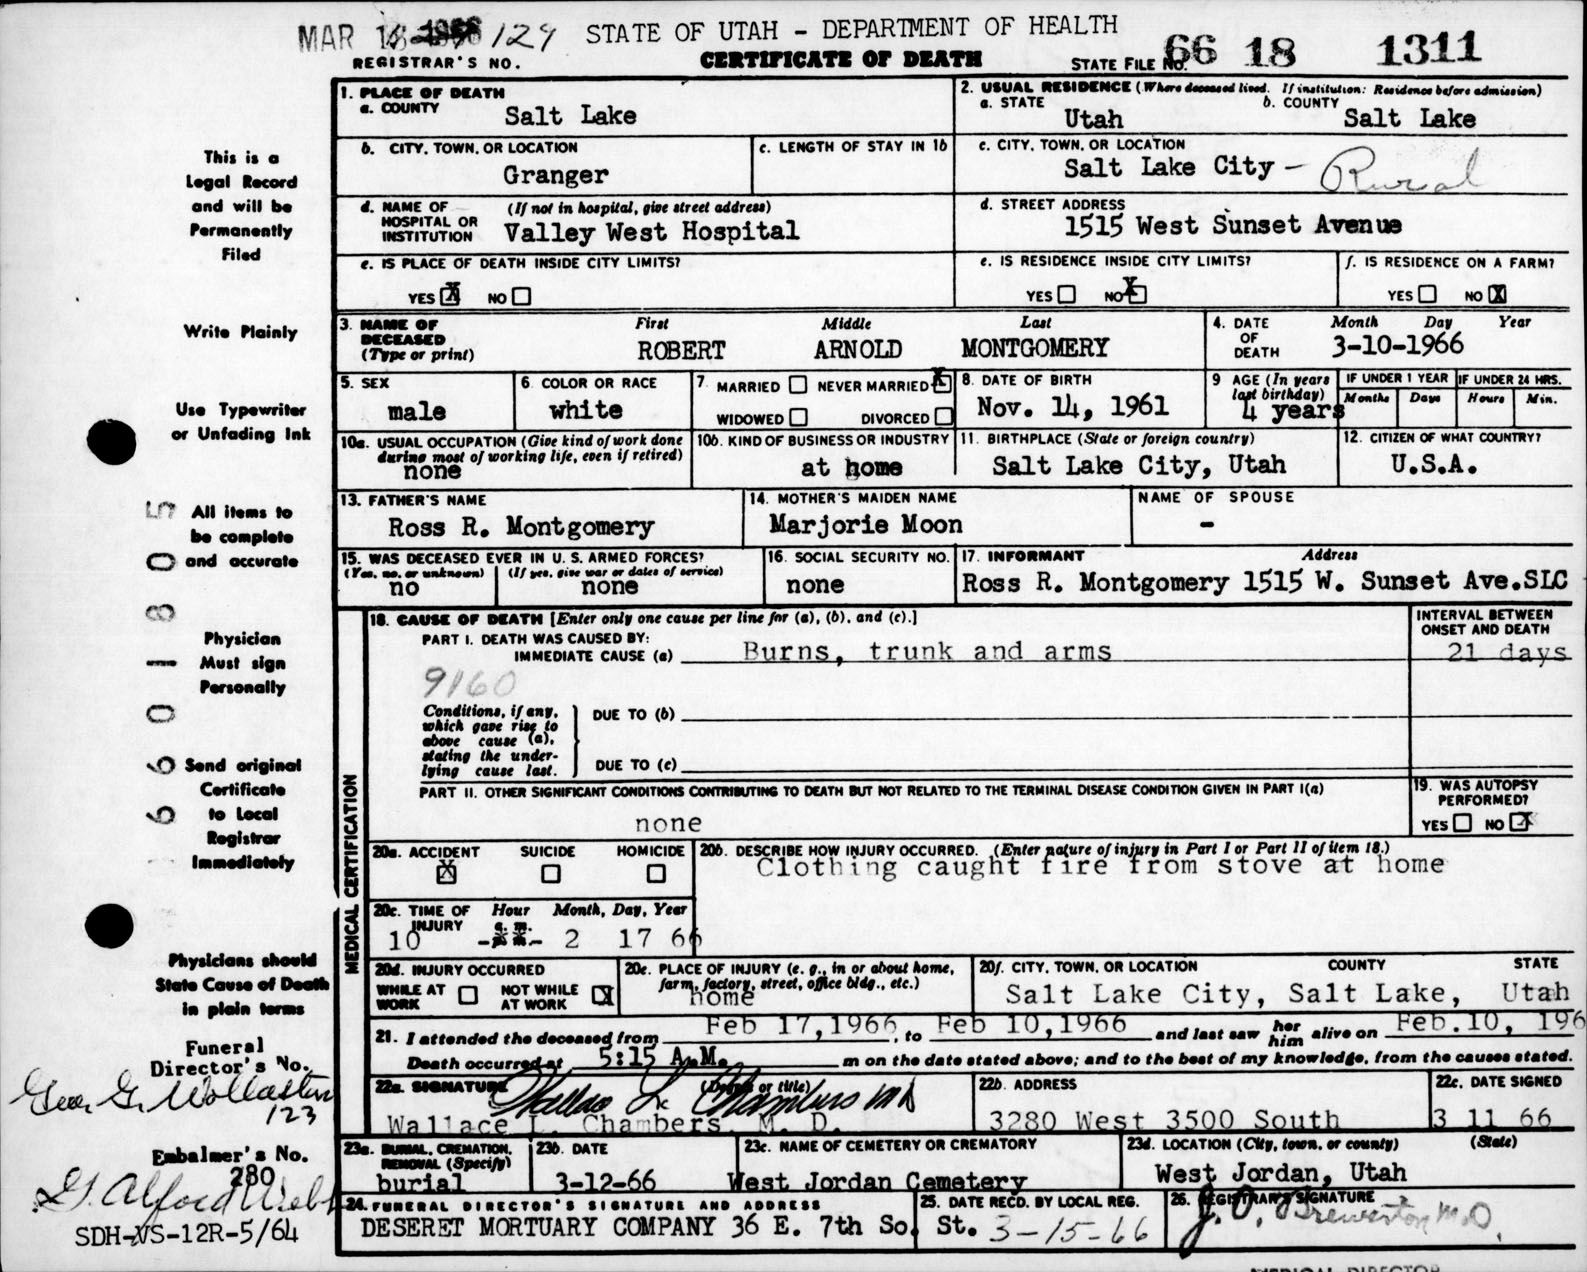 MAR 16 1966 129 STATE OF UTAH - DEPARTMENT OF HEALTH
REGISTRAR'S NO. CERTIFICATE OF DEATH STATE FILE NO. 66 18 1311
This is a
Legal Record
and will be
Permanently
Filed
Write Plainly
Use Typewriter
or Unfading Ink
All items to
be complete
and accurate
Physician
Must sign
Personally
Send original
Certificate
to Local
Registrar
Immediately
Physicians should
State Cause of Death
in plain terms
Funeral
Director's No.
Geo. G. Wollaston
123
Embalmer's No.
280
G. Alford Webb
SDH-VS-12R-5/64
6 6 0 1 8 0 5
1. PLACE OF DEATH
a. COUNTY Salt Lake
2. USUAL RESIDENCE (Where deceased lived. If institution: Residence before admission)
a. STATE Utah b. COUNTY Salt Lake
b. CITY, TOWN, OR LOCATION Granger
c. LENGTH OF STAY IN 1b
c. CITY, TOWN, OR LOCATION Salt Lake City - Rural
d. NAME OF HOSPITAL OR INSTITUTION (If not in hospital, give street address) Valley West Hospital
d. STREET ADDRESS 1515 West Sunset Avenue
e. IS PLACE OF DEATH INSIDE CITY LIMITS?
YES X NO
e. IS RESIDENCE INSIDE CITY LIMITS?
YES NO X
f. IS RESIDENCE ON A FARM?
YES NO X
3. NAME OF DECEASED (Type or print) First Middle Last
ROBERT ARNOLD MONTGOMERY
4. DATE OF DEATH Month Day Year
3-10-1966
5. SEX male
6. COLOR OR RACE white
7. MARRIED NEVER MARRIED X
WIDOWED DIVORCED
8. DATE OF BIRTH Nov. 14, 1961
9 AGE (In years last birthday) 4 years
IF UNDER 1 YEAR Months Days
IF UNDER 24 HRS. Hours Min.
10a. USUAL OCCUPATION (Give kind of work done during most of working life, even if retired) none
10b. KIND OF BUSINESS OR INDUSTRY at home
11. BIRTHPLACE (State or foreign country) Salt Lake City, Utah
12. CITIZEN OF WHAT COUNTRY? U.S.A.
13. FATHER'S NAME Ross R. Montgomery
14. MOTHER'S MAIDEN NAME Marjorie Moon
NAME OF SPOUSE -
15. WAS DECEASED EVER IN U. S. ARMED FORCES?
(Yes, no, or unknown) no (If yes, give war or dates of service) none
16. SOCIAL SECURITY NO. none
17. INFORMANT Address
Ross R. Montgomery 1515 W. Sunset Ave.SLC
MEDICAL CERTIFICATION
18. CAUSE OF DEATH [Enter only one cause per line for (a), (b), and (c).]
INTERVAL BETWEEN ONSET AND DEATH
PART I. DEATH WAS CAUSED BY:
IMMEDIATE CAUSE (a) Burns, trunk and arms 21 days
9160
Conditions, if any, which gave rise to above cause (a), stating the underlying cause last.
DUE TO (b)
DUE TO (c)
PART II. OTHER SIGNIFICANT CONDITIONS CONTRIBUTING TO DEATH BUT NOT RELATED TO THE TERMINAL DISEASE CONDITION GIVEN IN PART I(a)
none
19. WAS AUTOPSY PERFORMED?
YES NO X
20a. ACCIDENT X SUICIDE HOMICIDE
20b. DESCRIBE HOW INJURY OCCURRED. (Enter nature of injury in Part I or Part II of item 18.)
Clothing caught fire from stove at home
20c. TIME OF INJURY Hour a. m. Month, Day, Year
10 2 17 66
20d. INJURY OCCURRED
WHILE AT WORK NOT WHILE AT WORK X
20e. PLACE OF INJURY (e. g., in or about home, farm, factory, street, office bldg., etc.) home
20f. CITY, TOWN, OR LOCATION COUNTY STATE
Salt Lake City, Salt Lake, Utah
21. I attended the deceased from Feb 17,1966, to Feb 10,1966 and last saw her him alive on Feb.10, 196
Death occurred at 5:15 A.M. m on the date stated above; and to the best of my knowledge, from the causes stated.
22a. SIGNATURE (Degree or title) Wallace L. Chambers MD
Wallace L. Chambers, M. D.
22b. ADDRESS 3280 West 3500 South
22c. DATE SIGNED 3 11 66
23a. BURIAL, CREMATION, REMOVAL (Specify) burial
23b. DATE 3-12-66
23c. NAME OF CEMETERY OR CREMATORY West Jordan Cemetery
23d. LOCATION (City, town, or county) (State) West Jordan, Utah
24. FUNERAL DIRECTOR'S SIGNATURE AND ADDRESS
DESERET MORTUARY COMPANY 36 E. 7th So. St.
25. DATE RECD. BY LOCAL REG. 3-15-66
26. REGISTRAR'S SIGNATURE J. O. Brewerton M.D.
MEDICAL DIRECTOR